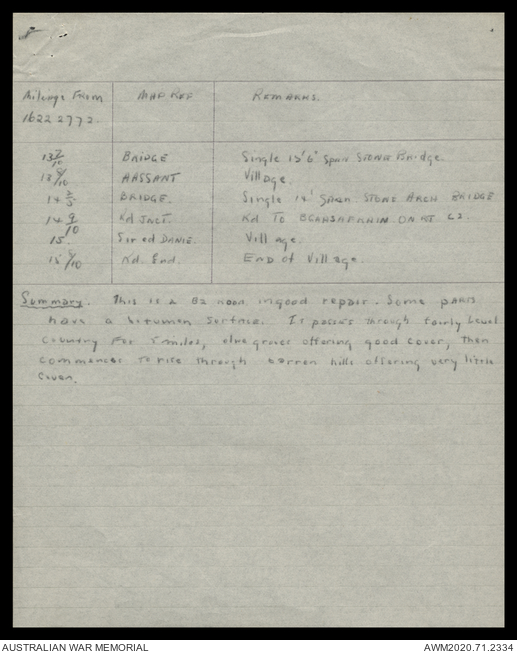 Mileage From MAP REF REMARKS.
1622 2772.
13 7/10 BRIDGE Single 15'6" Span Stone Bridge.
13 9/10 HASSANT Village.
14 2/5 BRIDGE. Single 14' Span Stone Arch BRIDGE
14 9/10 Rd Junct. Rd To ON RT
15. Sir ed DANIE. Village.
15 Rd. End. END of Village.
Summary. This is a B2 Road, in good repair. Some parts
have a bitumen surface. It passes through fairly Level
Country For 5 miles, olive groves offering good cover, then
commences to rise through barren hills offering very little
Cover.
AUSTRALIAN WAR MEMORIAL AWM2020.71.2334